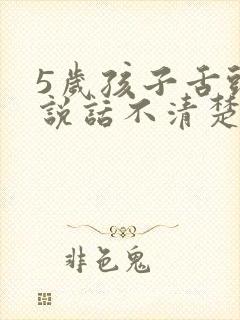 5歲孩子舌頭
說話不清楚
非色鬼